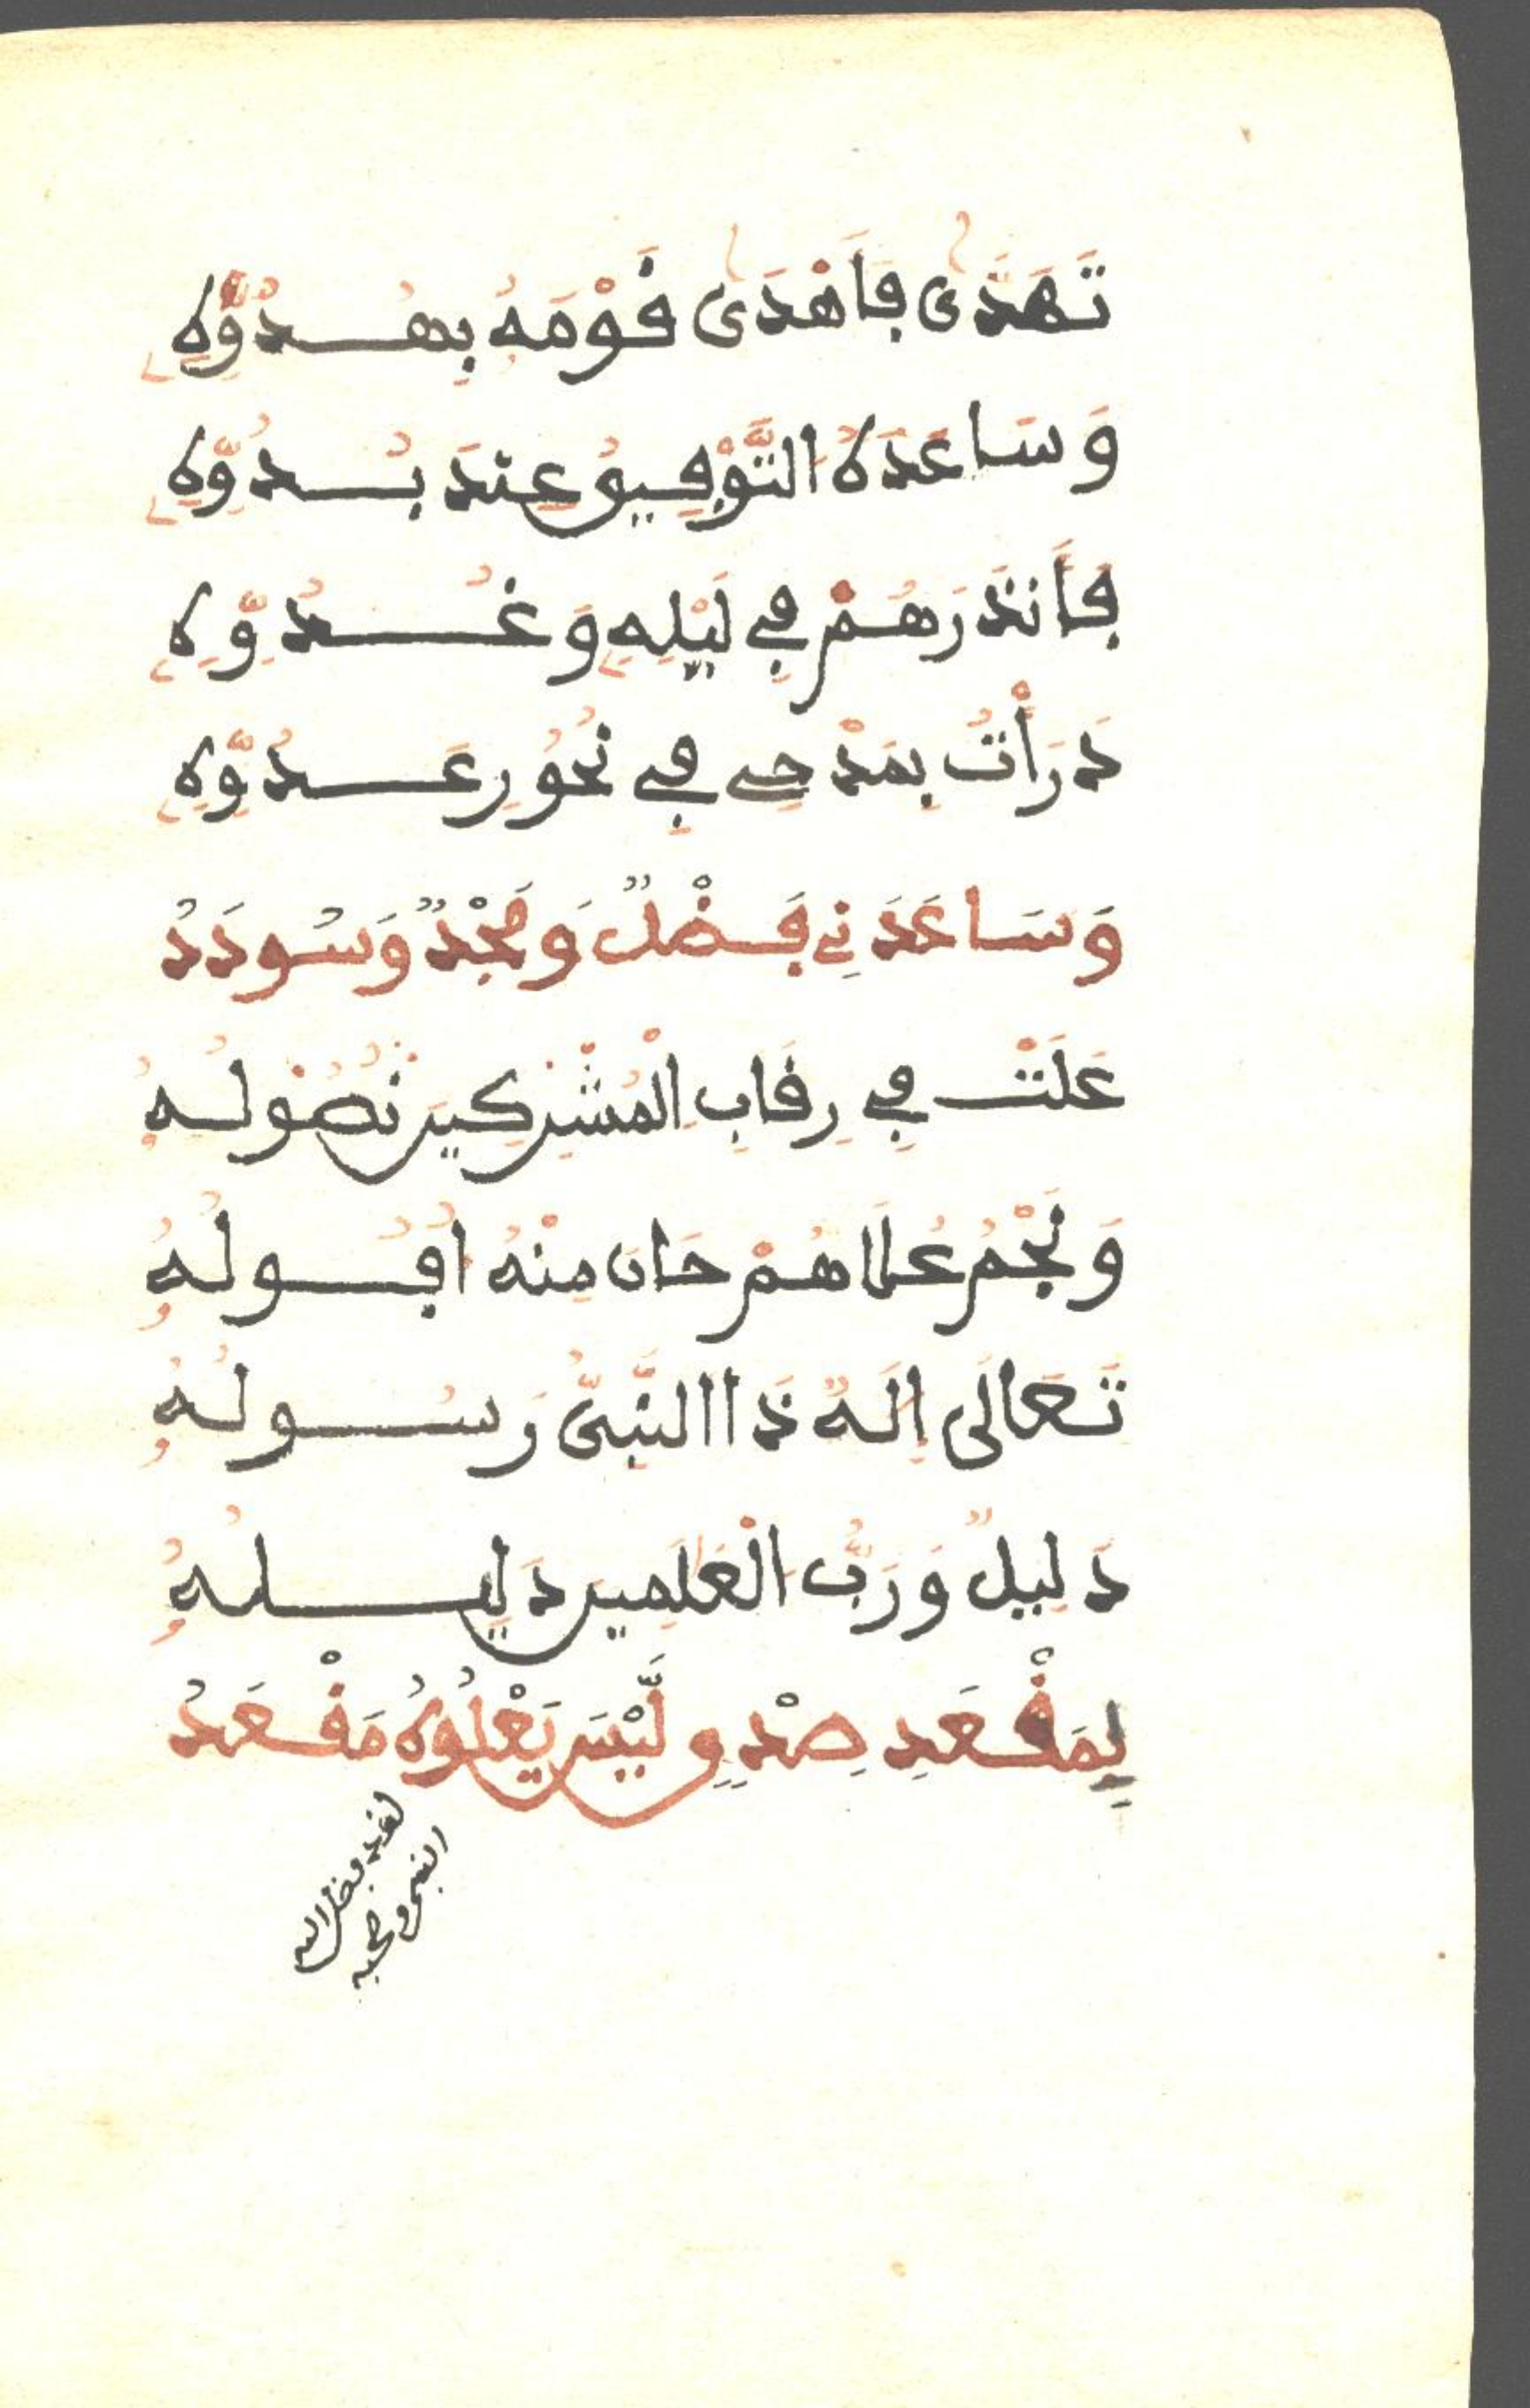 تَهَدَّى فَأَهْدَى قَوْمَهُ بِهُدُوِّهِ
وَسَاعَدَهُ التَّوْفِيقُ عِندَ بُدُوِّهِ
فَأَنذَرَهُمْ فِي لَيْلِهِ وَغُدُوِّهِ
دَرَأْتُ بِمَدْحِي فِي نُحُورِ عَدُوِّهِ
وَسَاعَدَنِي فَضْلٌ وَمَجْدٌ وَسُودَدُ
عَلَتْ فِي رِقَابِ الْمُشْرِكِينَ نُصُولُهُ
وَنَجْمُ عُلَاهُمْ حَانَ مِنْهُ اُفُولُهُ
تَعَالَى إِلَهٌ ذَا النَّبِيُّ رَسُولُهُ
دَلِيلٌ وَرَبُّ الْعَلَمِينَ دَلِيلُهُ
بِمَقْعَدِ صِدْقٍ لَّيْسَ يَعْلُوهُ مَقْعَدُ
لقد فضل الله
النبي وصحبه